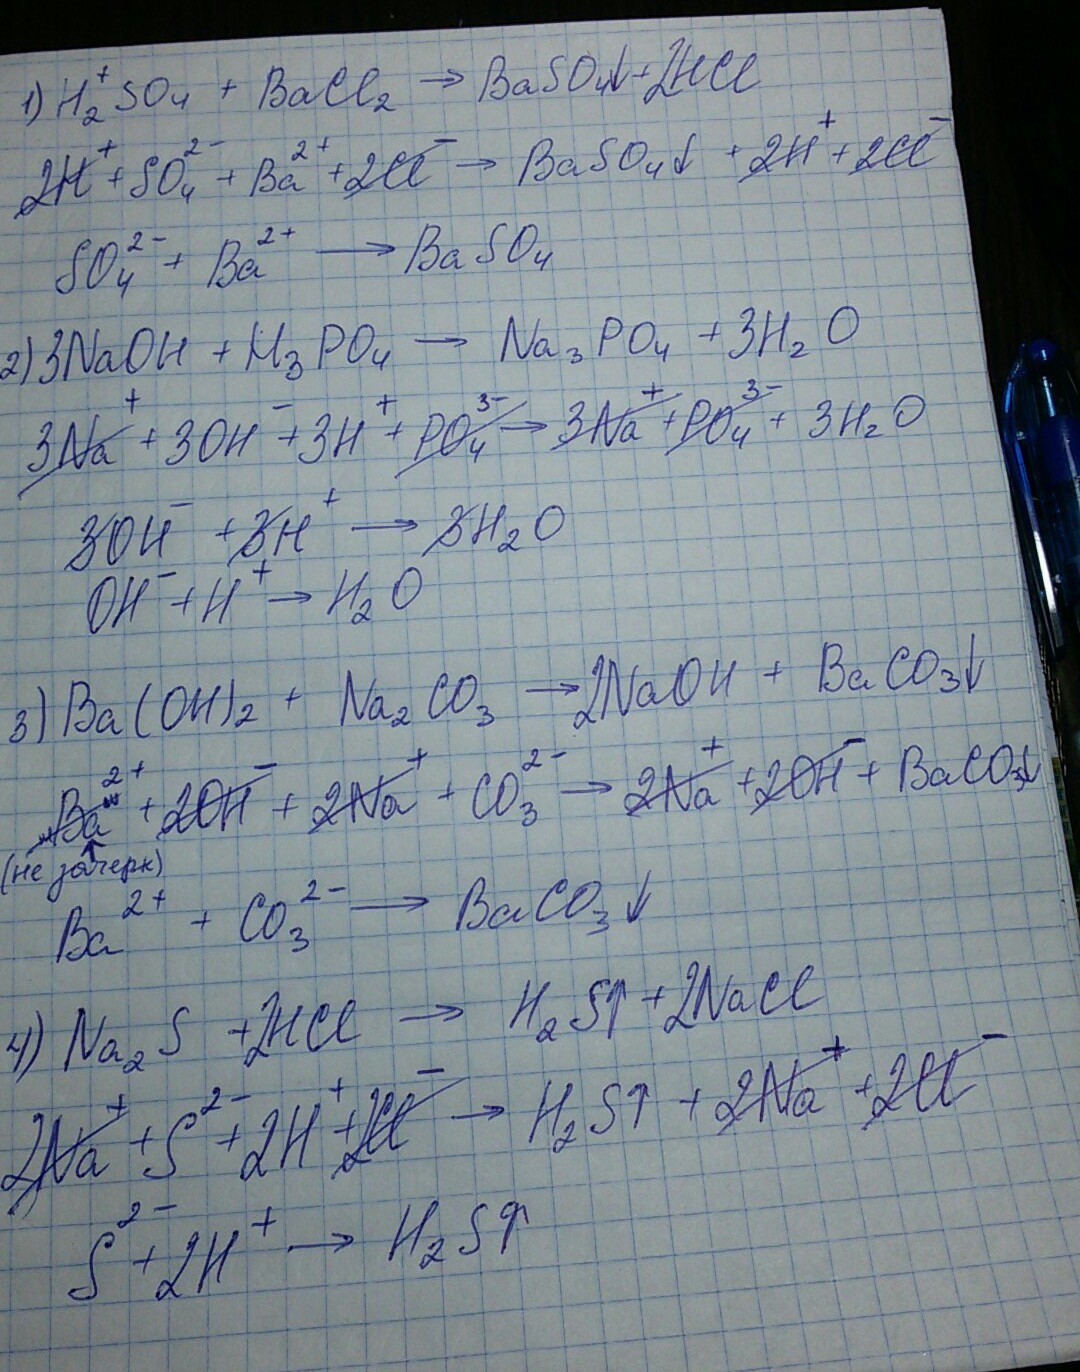 1) H₂⁺SO₄ + BaCl₂ → BaSO₄↓ + 2HCl
2H⁺ + SO₄²⁻ + Ba²⁺ + 2Cl⁻ → BaSO₄↓ + 2H⁺ + 2Cl⁻
SO₄²⁻ + Ba²⁺ → BaSO₄
2) 3NaOH + H₃PO₄ → Na₃PO₄ + 3H₂O
3Na⁺ + 3OH⁻ + 3H⁺ + PO₄³⁻ → 3Na⁺ + PO₄³⁻ + 3H₂O
3OH⁻ + 3H⁺ → 3H₂O
OH⁻ + H⁺ → H₂O
3) Ba(OH)₂ + Na₂CO₃ → 2NaOH + BaCO₃↓
Ba²⁺ + 2OH⁻ + 2Na⁺ + CO₃²⁻ → 2Na⁺ + 2OH⁻ + BaCO₃↓
(не зачерк)
Ba²⁺ + CO₃²⁻ → BaCO₃↓
4) Na₂S + 2HCl → H₂S↑ + 2NaCl
2Na⁺ + S²⁻ + 2H⁺ + 2Cl⁻ → H₂S↑ + 2Na⁺ + 2Cl⁻
S²⁻ + 2H⁺ → H₂S↑